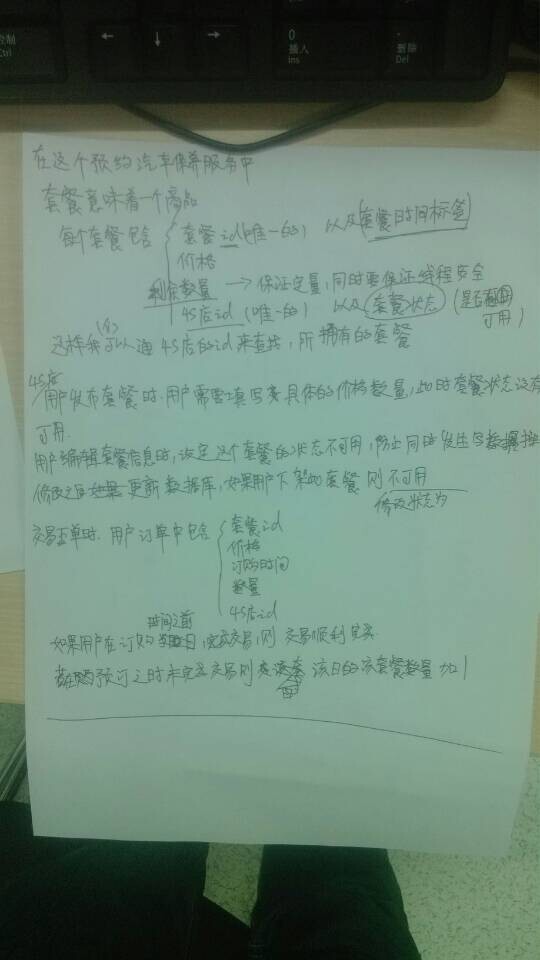 控制
Ctrl
←
↓
→
0
插入
Ins
.
删除
Del
在这个预约汽车保养服务中
套餐意味着一个商品
每个套餐包含 套餐id(唯一的) 以及(套餐时间标签)
价格
剩余数量 → 保证定量,同时要保证线程安全
4S店id (唯一的) 以及 套餐状态 (是否 可用)
这样我可以通 4S店的id来查找,所拥有的套餐
4S店
用户发布套餐时.用户需要填写 具体的价格数量,此时套餐状态设为
可用.
用户编辑套餐信息时,设定这个套餐的状态不可用,防止同时发生写数据
修改之后 更新数据库,如果用户下架如套餐 则 不可用
修改状态为
交易 单时. 用户订单中包含 套餐id
价格
订购时间
数量
4S店id
时间之前
如果用户在订购 完成交易,则 交易顺利完成
预订之时未完成交易则 该日的该套餐数量 加1